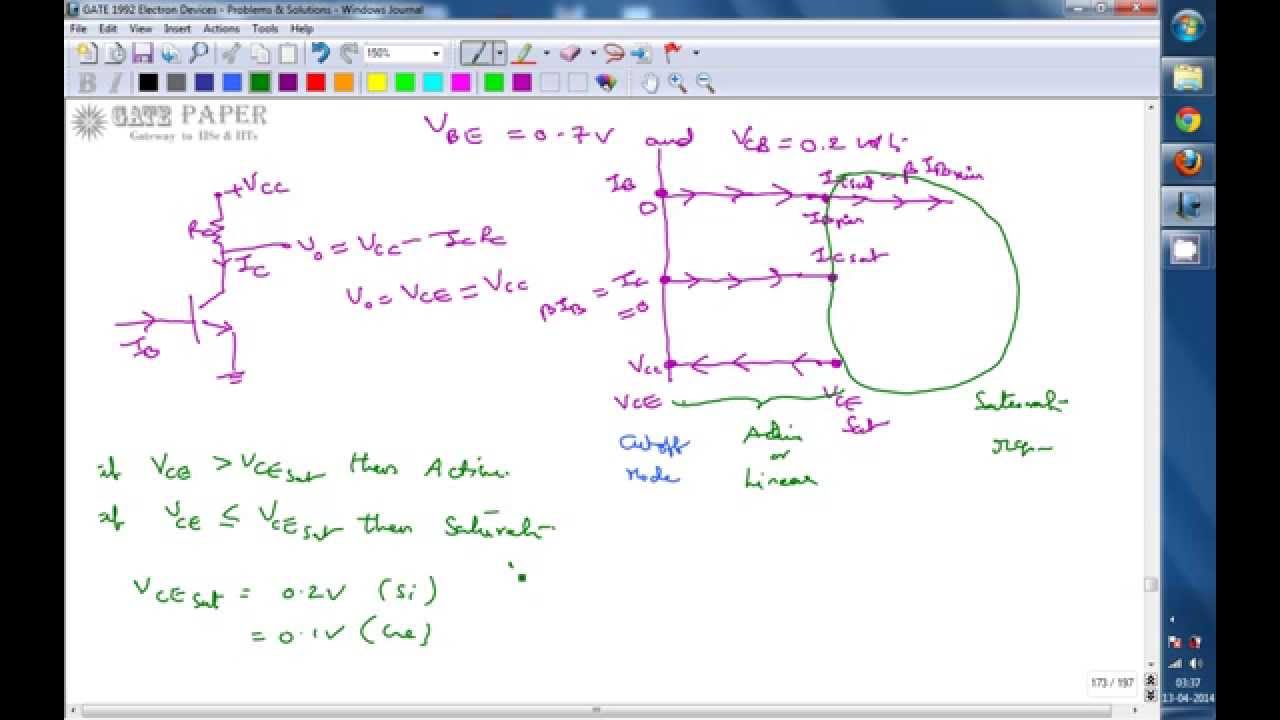 GATE 1992 Electron Devices - Problems & Solutions - Windows Journal
File Edit View Insert Actions Tools Help
150%
B I
GATE PAPER
Gateway to IISc & IITs
V_BE = 0.7V and V_CB = 0.2 volts
+V_CC
R_C
V_0 = V_CC - I_C R_C
I_C
V_0 = V_CE = V_CC
I_B
I_B
0
I_Csat = βI_Bmin
I_Bmin
I_Csat
βI_B = I_C
= 0
V_CC
V_CE
V_CE
Sat
Cutoff
Mode
Active
or
Linear
Saturat-
reg-
if V_CE > V_CE Sat then Active
if V_CE ≤ V_CE Sat then Saturat-
V_CE Sat = 0.2V (Si)
= 0.1V (Ge)
173 / 197
03:37
13-04-2014